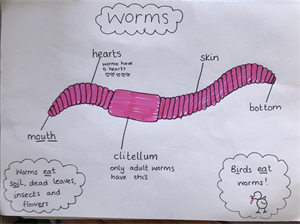 Worms
hearts
worms have
5 hearts
skin
bottom
mouth
clitellum
only adult worms
have this
Worms eat
soil, dead leaves,
insects and
flowers
Birds eat
worms!